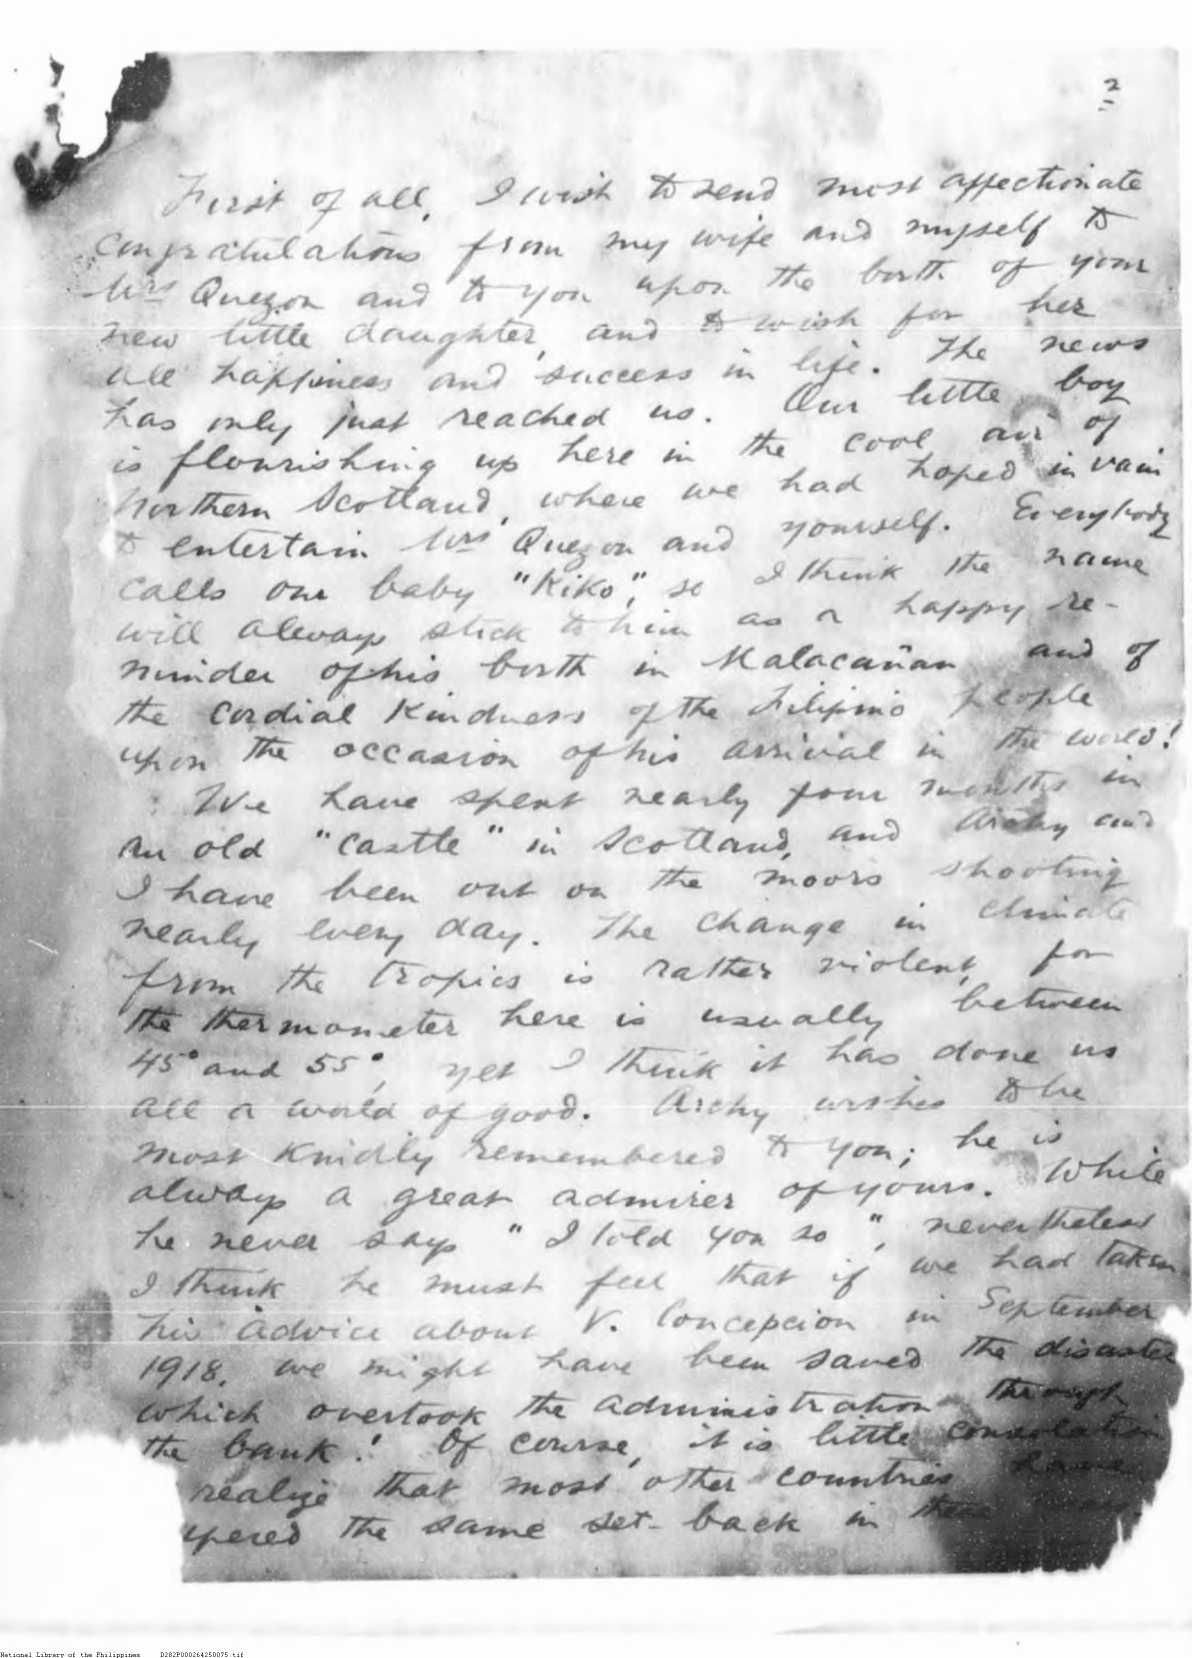 2
First of all, I wish to send most affectionate
congratulations from my wife and myself to
Mrs Quezon and to you upon the birth of your
new little daughter, and to wish for her
all happiness and success in life. The news
has only just reached us. Our little boy
is flourishing up here in the cool air of
Northern Scotland, where we had hoped in vain
to entertain Mrs Quezon and yourself. Everybody
calls our baby "Kiko", so I think the name
will always stick to him as a happy re-
minder of his birth in Malacañan and of
the cordial kindness of the Filipino people
upon the occasion of his arrival in the world!
We have spent nearly four months in
an old "castle" in Scotland, and Archy and
I have been out on the moors shooting
nearly every day. The change in climate
from the tropics is rather violent, for
the thermometer here is usually between
45° and 55°, yet I think it has done us
all a world of good. Archy wishes to be
most kindly remembered to you; he is
always a great admirer of yours. While
he never says "I told you so", nevertheless
I think he must feel that if we had taken
his advice about V. Concepcion in September
1918, we might have been saved the disaster
which overtook the administration through
the bank! Of course, it is little consolation
realize that most other countries have
the same set-back in these
National Library of the Philippines D282P000264250075.tif